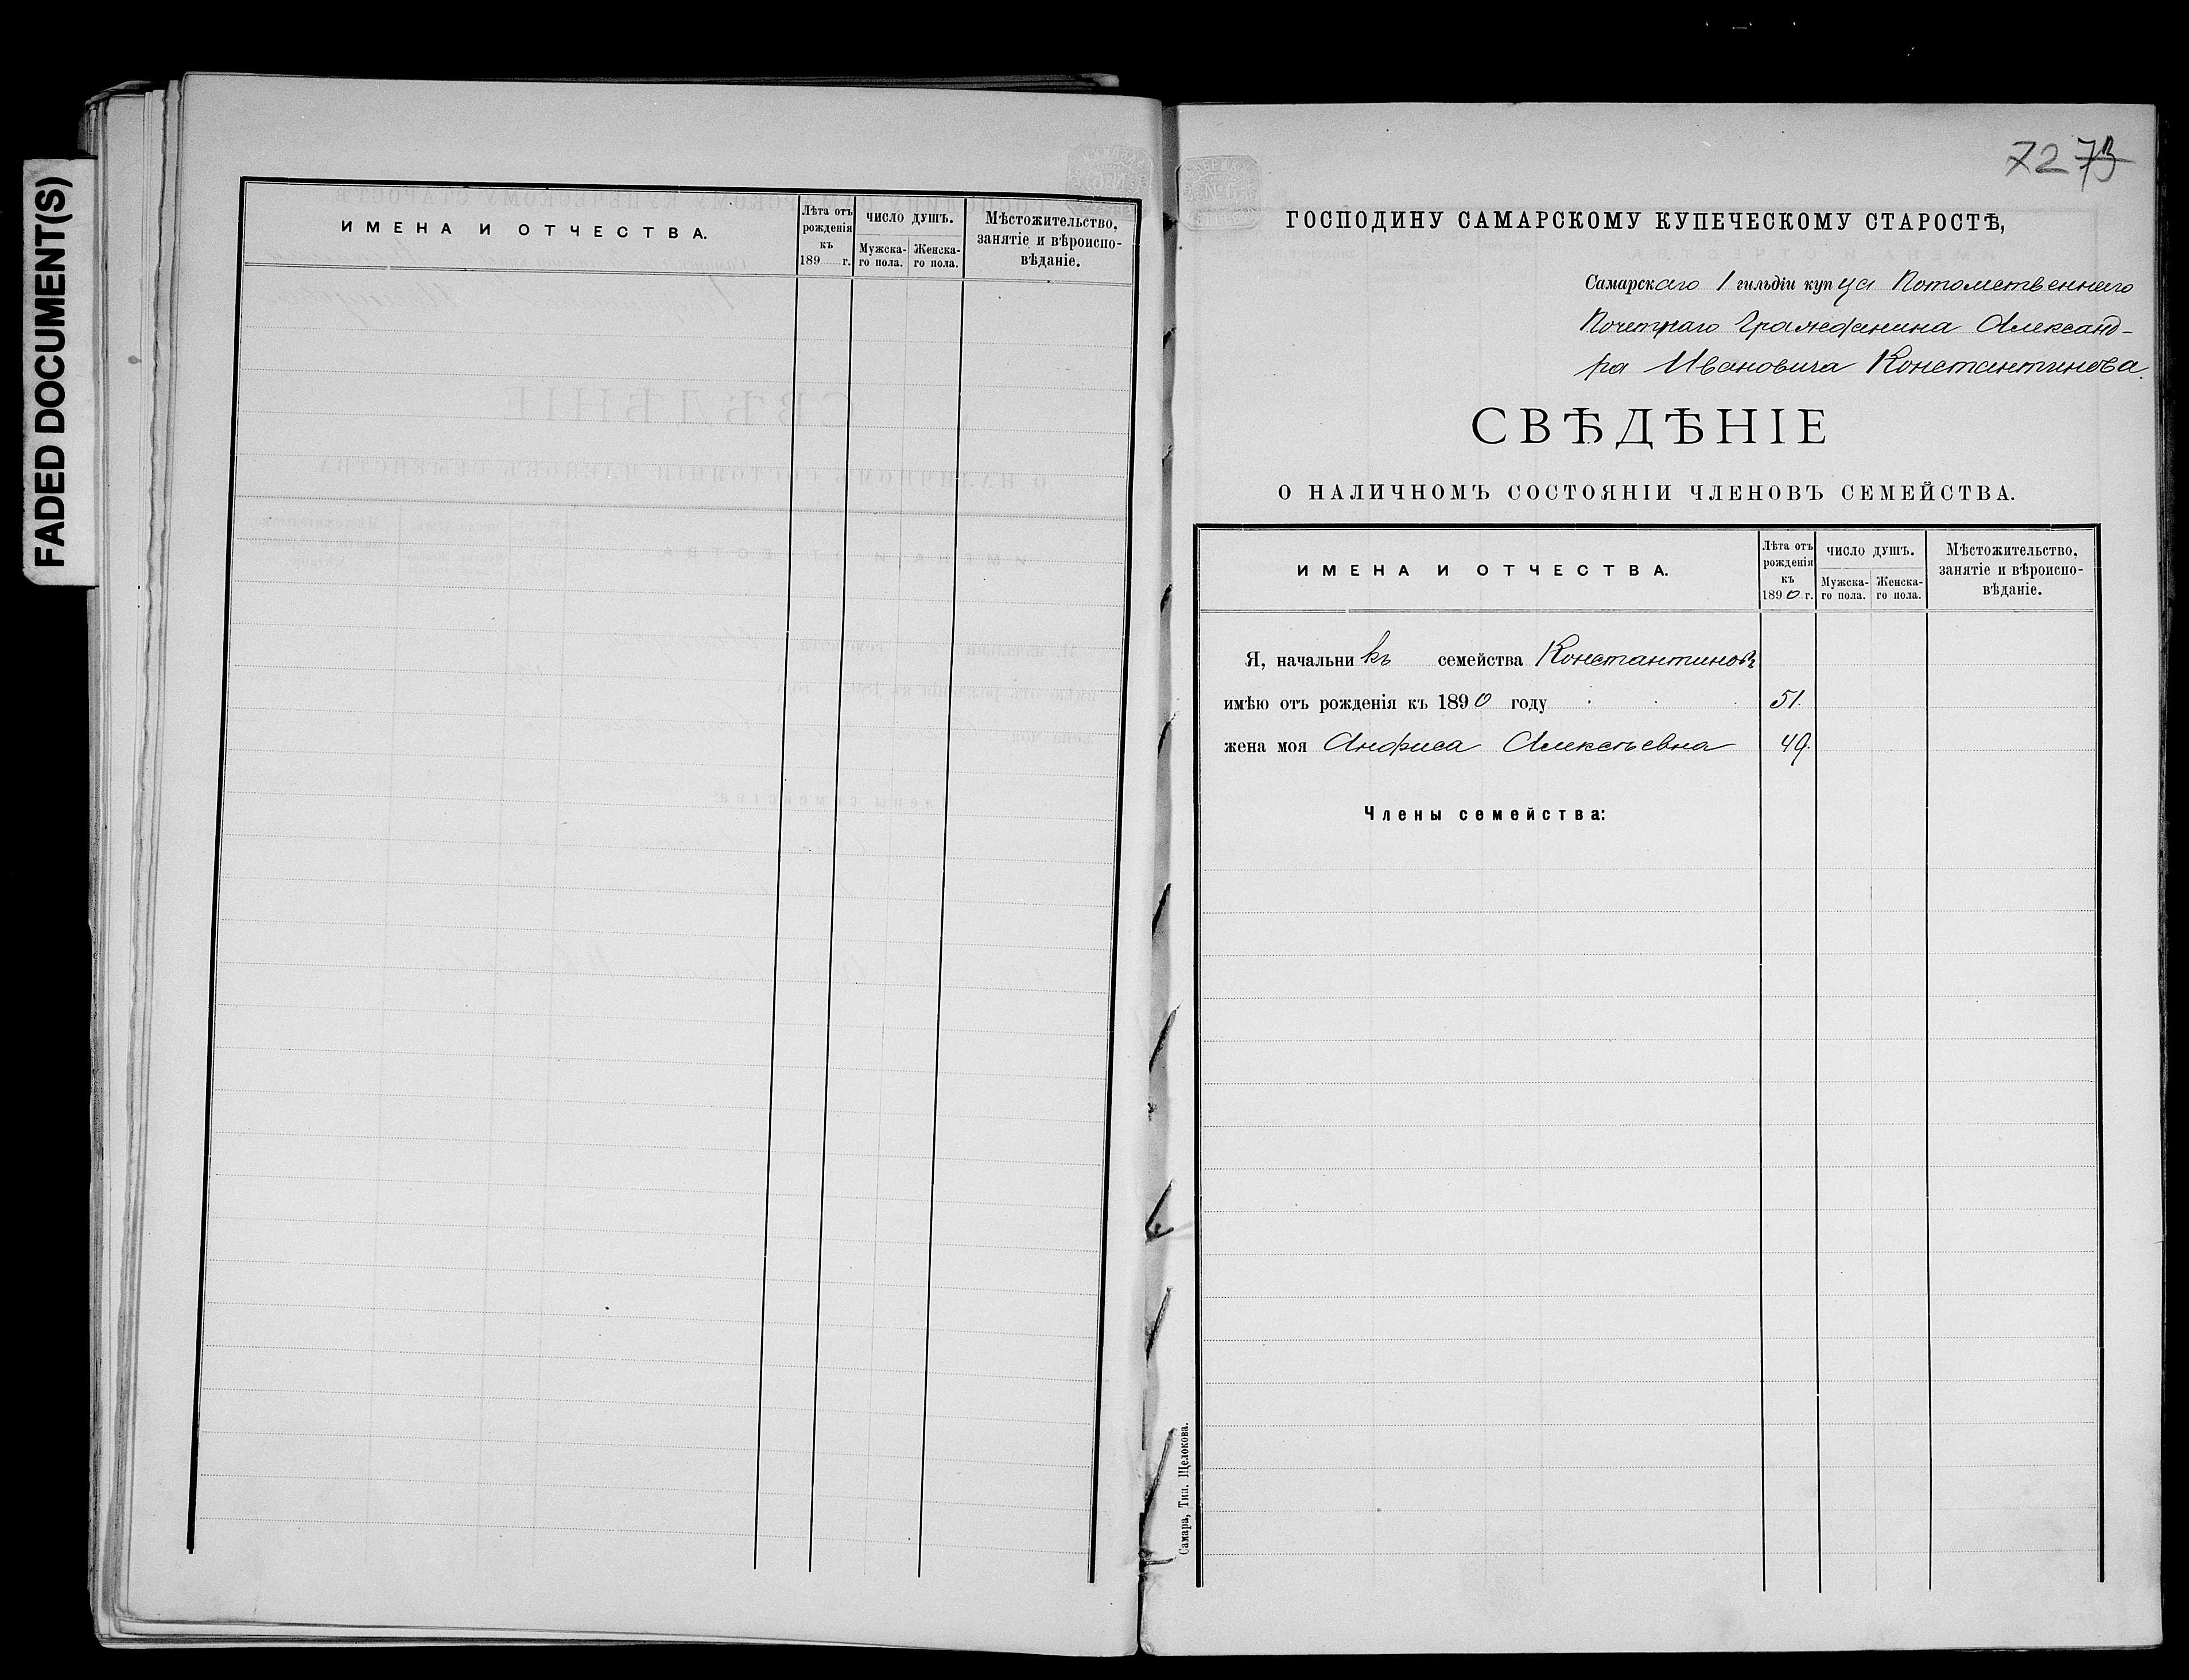 FADED DOCUMENT(S)
ИМЕНА И ОТЧЕСТВА.
Лѣта отъ
рожденія
къ
189 г.
ЧИСЛО ДУШЪ.
Мужска-
го пола.
Женска-
го пола.
Мѣстожительство,
занятіе и вѣроиспо-
вѣданіе.
72 73
ГОСПОДИНУ САМАРСКОМУ КУПЕЧЕСКОМУ СТАРОСТѢ,
Самарскаго 1 гильдіи купца Потомственнаго
Почетнаго Гражданина Александ-
ра Ивановича Константинова.
СВѢДѢНІЕ
О НАЛИЧНОМЪ СОСТОЯНІИ ЧЛЕНОВЪ СЕМЕЙСТВА.
ИМЕНА И ОТЧЕСТВА.
Лѣта отъ
рожденія
къ
1890 г.
ЧИСЛО ДУШЪ.
Мужска-
го пола.
Женска-
го пола.
Мѣстожительство,
занятіе и вѣроиспо-
вѣданіе.
Я, начальникъ семейства Константиновъ
имѣю отъ рожденія къ 1890 году 51.
жена моя Анфиса Алексѣевна 49.
Члены семейства:
Самара, Тип. Щелокова.